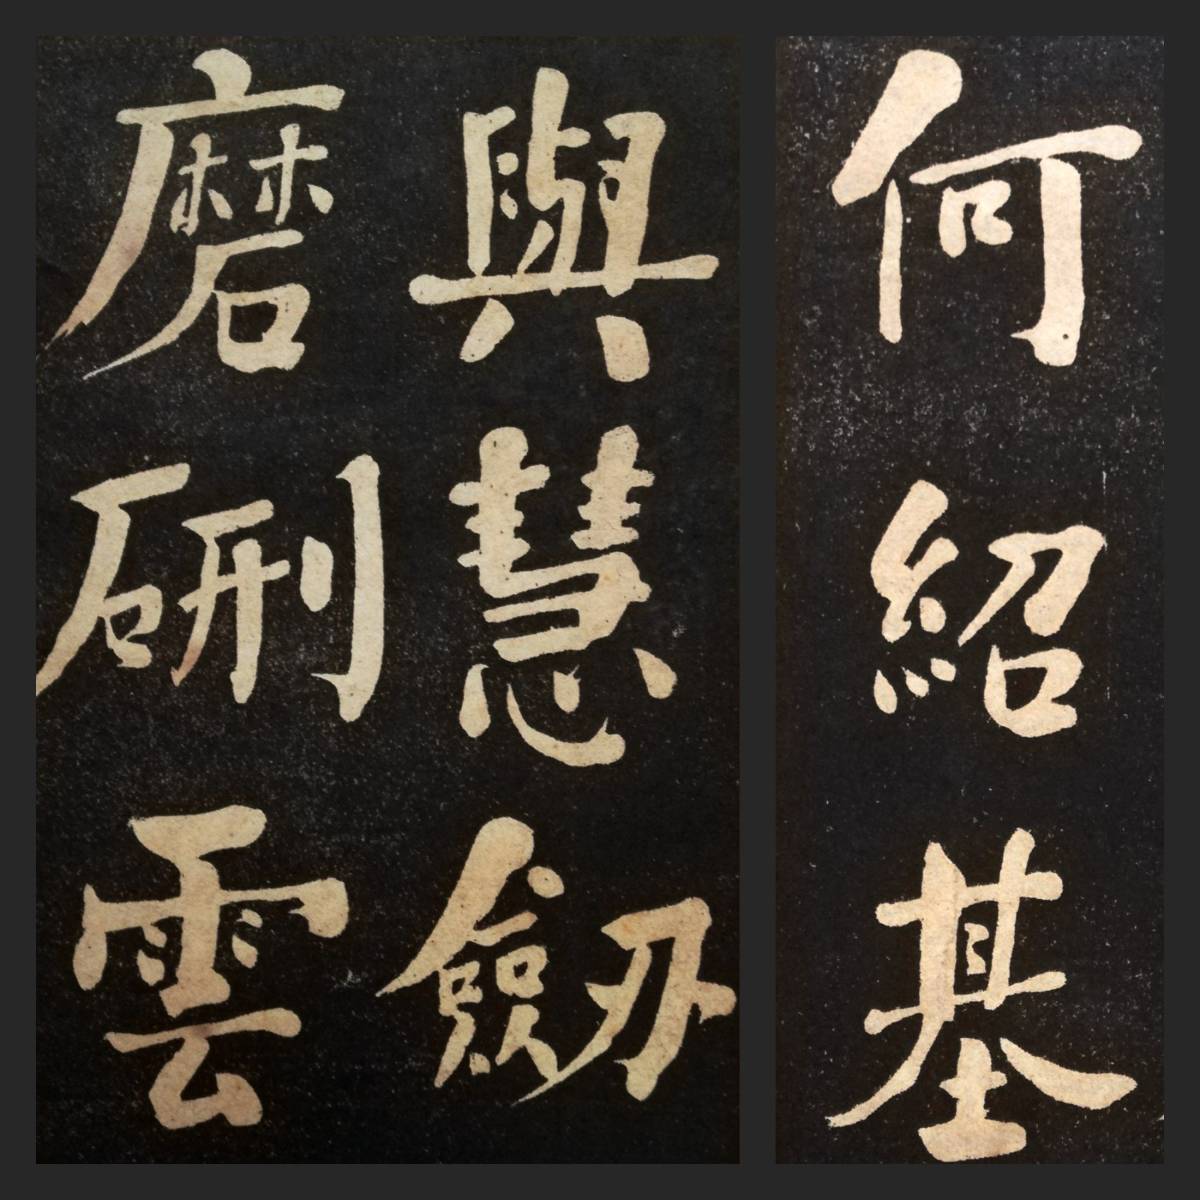 何紹基
與慧劒
磨硎雲